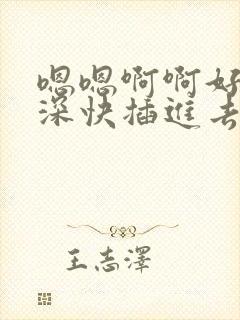 嗯嗯啊啊好
深快插進去
王志澤